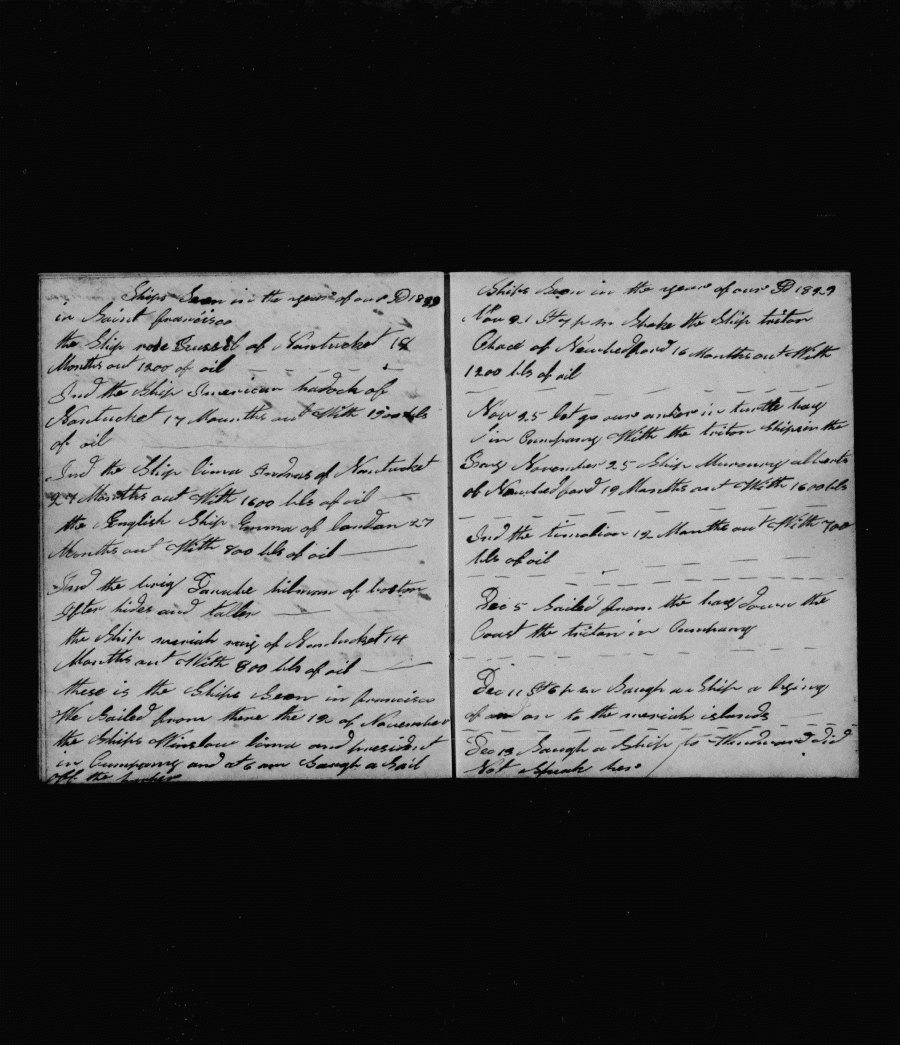 Ships Seen in the year of our D 1829
in Saint francisco
the Ship rose Russel of Nantucket 18
Months out 1200 of oil
And the Ship American hadock of
Nantucket 17 Mounths out With 1900 bls
of oil
And the Ship lima of Nantucket
27 Months out With 1600 bls of oil
the English Ship Emma of london 27
Months out With 800 bls of oil
And the brig Danube hilman of boston
After hides and taller
the Ship meriah of Nantucket 14
Months out With 800 bls of oil
these is the Ships Seen in francisco
We Sailed from there the 12 of November
the Ships Winslow lima and president
in Cumpany and at 6 am Saugh a Sail
off the
Ships Seen in the year of our D 1829
Nov 21 At 7 p m Spoke the Ship triton
Chace of Newbedford 16 Months out With
1200 bls of oil
Nov 25 let go our anker in turtle bay
in Cumpany With the triton Ships in the
Bay November 25 Ship Mercury
of Newbedford 19 Months out With 1600 bls
And the timolion 12 Months out With 700
bls of oil
Dec 5 Sailed from the bay down the
Coast the triton in Cumpany
Dec 11 At 6 p m Saugh a Ship a
of an on to the meriah islands
Dec 13 Saugh a Ship to Windward Did
Not Speak her